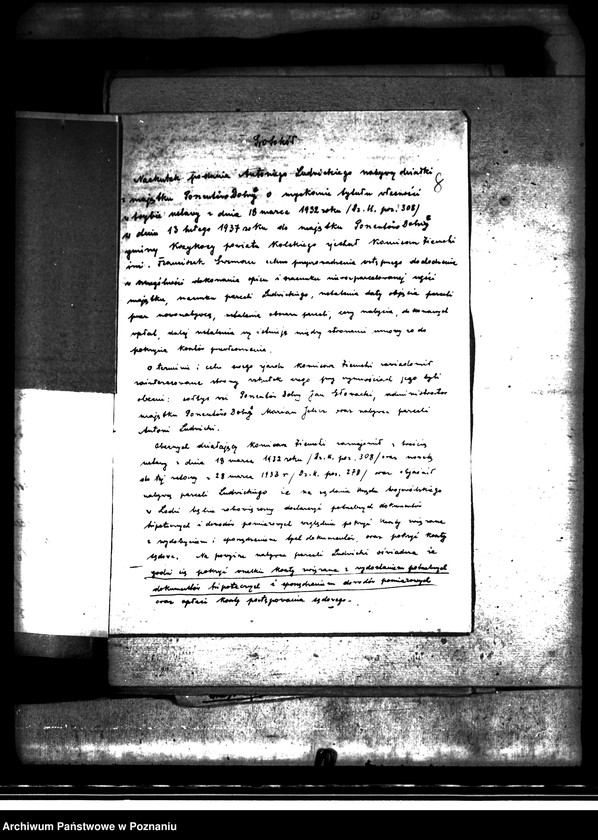 Protokół
8
Naskutek podania Antoniego Ludwickiego nabywcy działki
z majątku Ponentów Dolny o uzyskanie tytułu własności
w trybie ustawy z dnia 18 marca 1932 roku /Dz. U. poz. 308/
w dniu 13 lutego 1937 roku do majątku Ponentów Dolny
gminy powiatu Kolskiego zjechał Komisarz Ziemski
inż. Franciszek celem przeprowadzenia wstępnego dochodzenia
w szczególności dokonania opisu i szacunku nierozparcelowanej części
majątku, szacunku parceli Ludwickiego, ustalenia daty objęcia parceli
przez nowonabywcę, ustalenia obszaru parceli, ceny nabycia, dokonanych
wpłat, dalej ustalenia czy istnieją między stronami umowy co do
pokrycia kosztów przewłaszczenia.
O terminie i celu swego zjazdu Komisarz Ziemski zawiadomił
zainteresowane strony wskutek czego przy czynnościach jego byli
obecni: sołtys wsi Ponentów Dolny Jan Głowacki, administrator
majątku Ponentów Dolny Marian oraz nabywca parceli
Antoni Ludwicki.
Obecnych działający Komisarz Ziemski zaznajomił z treścią
ustawy z dnia 18 marca 1932 roku /Dz. U. poz. 308/ oraz noweli
do tej ustawy z 28 marca 1933 r /Dz. U. poz. 278/ oraz objaśnił
nabywcę parceli Ludwickiego że na żądanie Urzędu Wojewódzkiego
w Łodzi będzie zobowiązany dostarczyć potrzebnych dokumentów
hipotecznych i dowodów pomiarowych względnie pokryć koszty związane
z wydobyciem i sporządzeniem tych dokumentów, oraz pokryć koszty
sądowe. Na powyższe nabywca parceli Ludwicki oświadcza że
godzi się pokryć wszelkie koszty związane z wydostaniem potrzebnych
dokumentów hipotecznych i sporządzeniem dowodów pomiarowych
oraz opłaci koszty postępowania sądowego.-
Archiwum Państwowe w Poznaniu